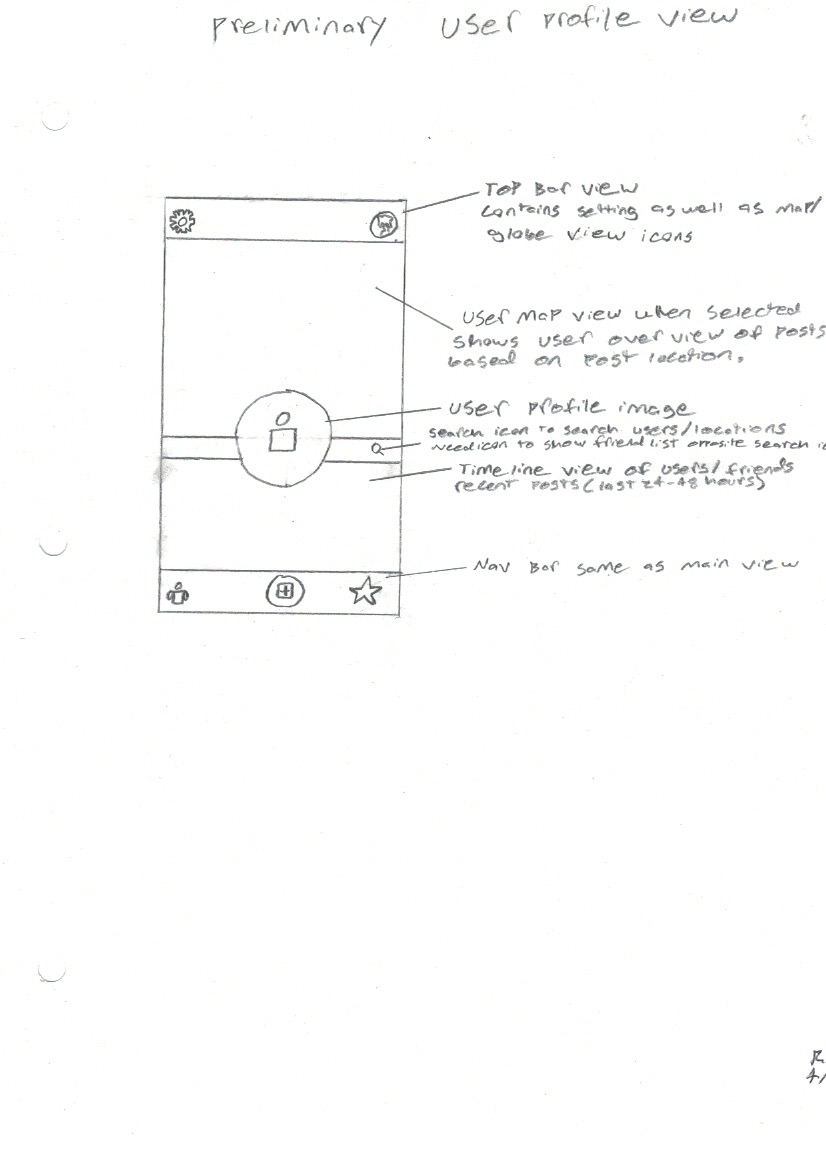 Preliminary User Profile View
Top Bar view
contains setting as well as map/
globe view icons
User map view when selected
shows user over view of posts
based on post location.
User profile image
search icon to search users/locations
need icon to show friend list opposite search
Timeline view of users/friends
recent posts (last 24-48 hours)
Nav Bar same as main view